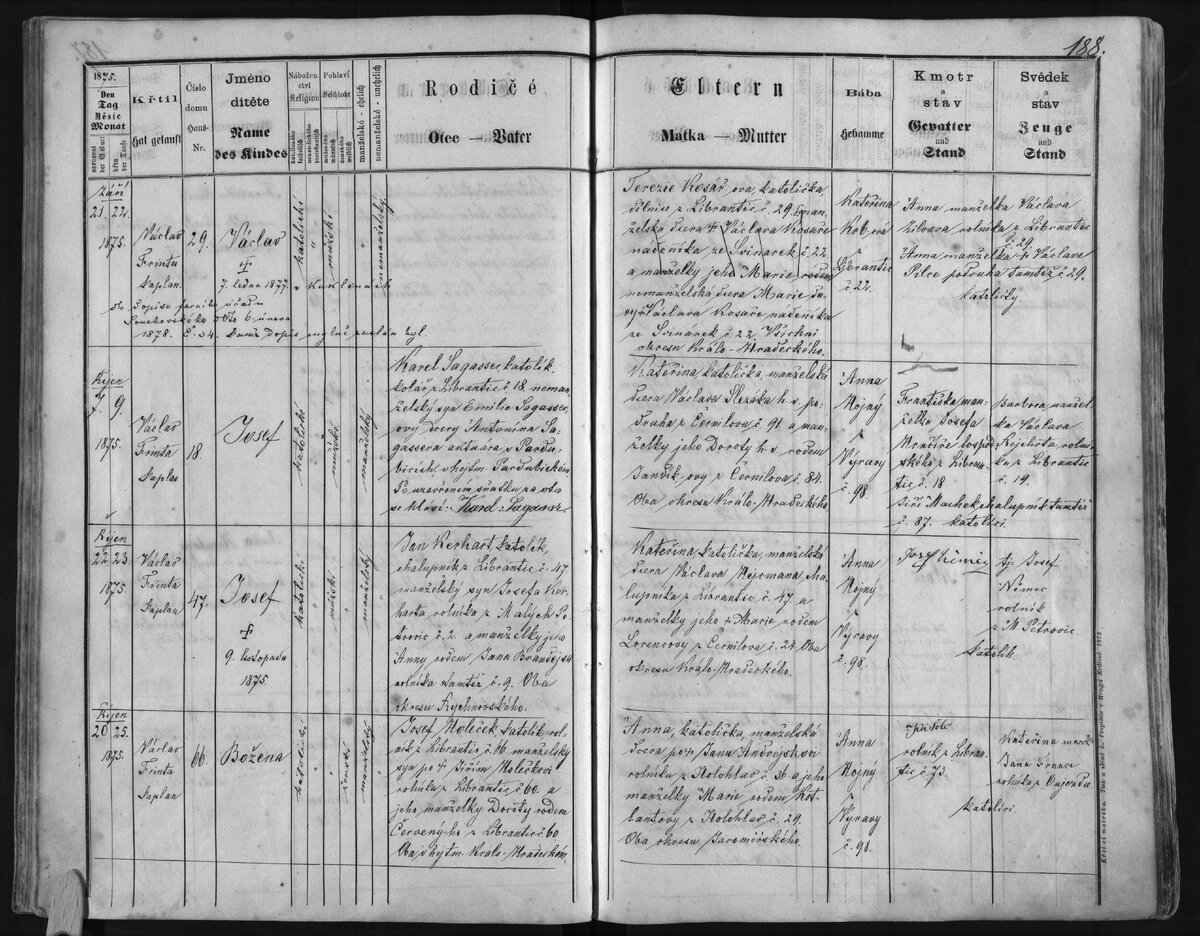 188.
1875.
Den
Tag
Měsíc
Monat
narození der Geburt
křtu der Taufe
Křtil
Hat getauft
Číslo
domu
Haus-
Nr.
Jméno
dítěte
Name
des Kindes
Nábožen-
ství
Religion
katolického
katholisch
Pohlaví
Geschlecht
mužského
männlich
ženského
weiblich
manželské - ehelich
nemanželské - unehelich
Rodičé
Otec — Vater
Eltern
Matka — Mutter
Bába
Hebamme
Kmotr
a
stav
Gevatter
und
Stand
Svědek
a
stav
Zeuge
und
Stand
Září
21. 22.
1875.
Václav
Frinta
kaplan
29.
Václav
7. ledna 1877. v Kuklenách
katolické
"
mužské
"
nemanželský
dopisu farního úřadu
6. února
1878. Č. 34.
Terezie Kosář ova, katolička
dělnice z Librantic č. 29, Eman-
želská dcera Václava Kosaře
nádeníka ze Svinárek č. 22
a manželky jeho Marie, rodem
nemanželská dcera Marie
Václava Kosaře nádeníka
ze Svinárek č. 22. Všichni
okresu Králo-Hradeckého.
Kateřina
z
Librantic
č. 22.
Anna manželka Václava
rolníka z Librantic
č. 29.
Anna manželka Václava
Pilce podruha tamtéž č. 29.
katolíčky
Říjen
7. 9.
1875.
Václav
Frinta
kaplan
18
Josef
katolické
"
mužské
"
manželský
Karel Sagasser, katolík,
kolář z Librantic č. 18, neman-
želský syn Emilie Sagasser-
ovy dcery Antonína Sa-
gassera aktuára v Pardu-
bicích, v hejtm. Pardubickém
Po uzavřeném sňatku za otce
se hlásí: Karel Sagasser
Kateřina katolička, manželská
dcera Václava Slezáka h. v. po-
druha z Černilova č. 91 a man-
želky jeho Doroty h. v. rodem
Jandík-ovy z Černilova č. 84.
Oba okresu Králo-Hradeckého.
Anna
Mojný
z
Výravy
č. 98
Františka man-
želka Josefa
z Libran-
tic č. 18
Jiří Machek chalupník tamtéž
č. 87. katolíci
Barbora manžel-
ka Václava
Rejchrta rolní-
ka z Librantic
č. 19.
Říjen
22. 23.
1875.
Václav
Frinta
kaplan
47.
Josef
9. listopadu
1875
katolické
"
mužské
"
manželský
Jan Kerhart katolík,
chalupník z Librantic č. 47
manželský syn Josefa Ker-
harta rolníka z Malých Pe-
trovic č. 2. a manželky jeho
Anny rodem Jana Brandejsa
rolníka tamtéž č. 9. Oba
okresu Rychnovského.
Kateřina, katolička, manželská
dcera Václava Hejcmana cha-
lupníka z Librantic č. 47. a
manželky jeho Marie rodem
Lorencovy z Černilova č. 24. Oba
okresu Králo-Hradeckého.
Anna
Mojný
z
Výravy
č. 98.
Josef Němec
tj. Josef
Němec
rolník
z M. Petrovic.
katolík.
Říjen
20. 25.
1875.
Václav
Frinta
kaplan
66.
Božena
katolické
"
"
ženské
manželský
Josef Holeček katolík rol-
ník z Librantic č. 66 manželský
syn po Jiřím Holečkovi
rolníku z Librantic č. 60. a
jeho manželky Doroty rodem
Červený-ho z Librantic č. 60
Oba v hejtm. Králo-Hradeckém.
Anna, katolička, manželská
dcera po Janu Andrýskovi
rolníku z Holohlav č. 36. a jeho
manželky Marie rodem Kot-
lantovy z Holohlav č. 29.
Oba okresu Jaroměřského.
Anna
Mojný
z
Výravy
č. 98.
rolník z Libran-
tic č. 73.
Kateřina manž.
Jana
rolníka z Oujezda
katolíci